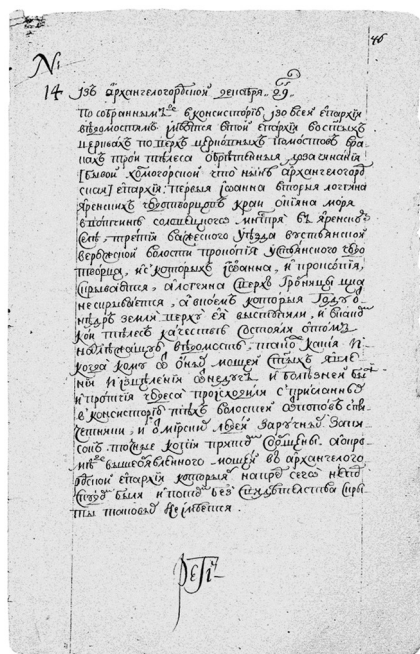 46
№
14 Iзъ архангелогородской декабря 29
По собраннымъ в консисторiю iзо всея епархiи
вѣдомостямъ iмѣется втой епархiи востыхъ
церквахъ поверхъ церковныхъ помостовъ гра
пахъ три тѣлеса обрѣтенныя до зачинанiя
[бывой холмогорской что нынѣ архангелогород
ской] епархiи: первыя iоанна вторыя логгина
яренскихъ чудотворцовъ краи окiяна моря
ввотчинѣ соловецкого мнтря въ яренско
селѣ, третiя важеского уѣзда вустьянской
вервожской волости прокопiя устьянского чудо
творца, ис которыхъ iоанна, и прокопiя,
скрываются, а логгина сверхъ гробницы
не скрывается, а вкоемъ которыя году о
нѣдръ земли верху ея выступили, и
кои тѣлесъ качествѣ состояли о томъ
надлежащихъ вѣдомостей, також какiя и
когда кому от оныхъ мощей стыхъ явле
нiи и iзцѣленiи от недугъ и болѣзней
и протчiя чудеса происходили с присланныхъ
в консисторiю тѣхъ волостей от поповъ с при
четники, и от мiрскихъ людей заручныхъ запи
сокъ точные копiи при семъ сообщены а опро
мѣ вышеобявленного мощей во архангелого
родской епархiи которыя напредь сего
были и потомъ без свидѣтелства скры
ты таковыхъ не iмѣется.